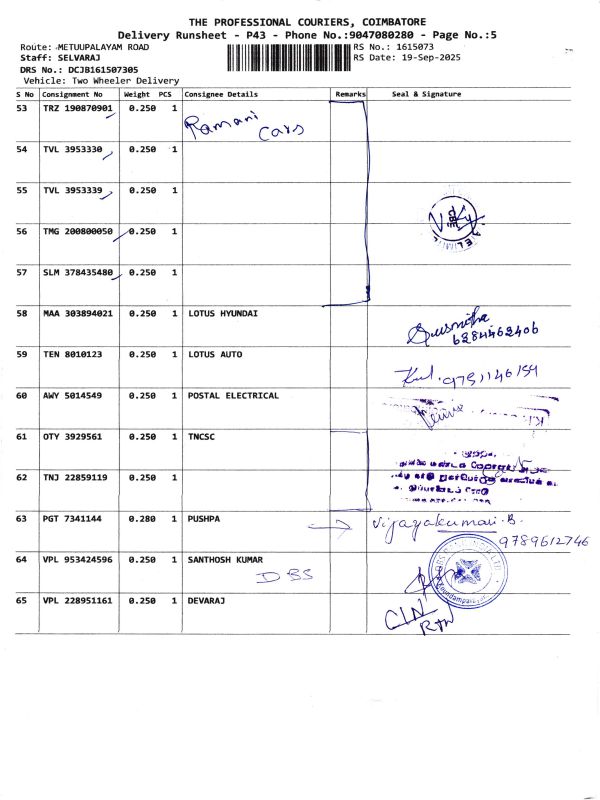 THE PROFESSIONAL COURIERS, COIMBATORE
Delivery Runsheet - P43 - Phone No.:9047080280 - Page No.:5
Route: METUUPALAYAM ROAD RS No.: 1615073
Staff: SELVARAJ RS Date: 19-Sep-2025
DRS No.: DCJB161507305
Vehicle: Two Wheeler Delivery
S No Consignment No Weight PCS Consignee Details Remarks Seal & Signature
53 TRZ 190870901 0.250 1 Ramani Cars
54 TVL 3953330 0.250 1
55 TVL 3953339 0.250 1
56 TMG 200800050 0.250 1
57 SLM 378435480 0.250 1
58 MAA 303894021 0.250 1 LOTUS HYUNDAI
6284462406
59 TEN 8010123 0.250 1 LOTUS AUTO
60 AWY 5014549 0.250 1 POSTAL ELECTRICAL
61 OTY 3929561 0.250 1 TNCSC
62 TNJ 22859119 0.250 1
63 PGT 7341144 0.280 1 PUSHPA Vijayakumari.B.
9789612746
64 VPL 953424596 0.250 1 SANTHOSH KUMAR
DBS
65 VPL 228951161 0.250 1 DEVARAJ